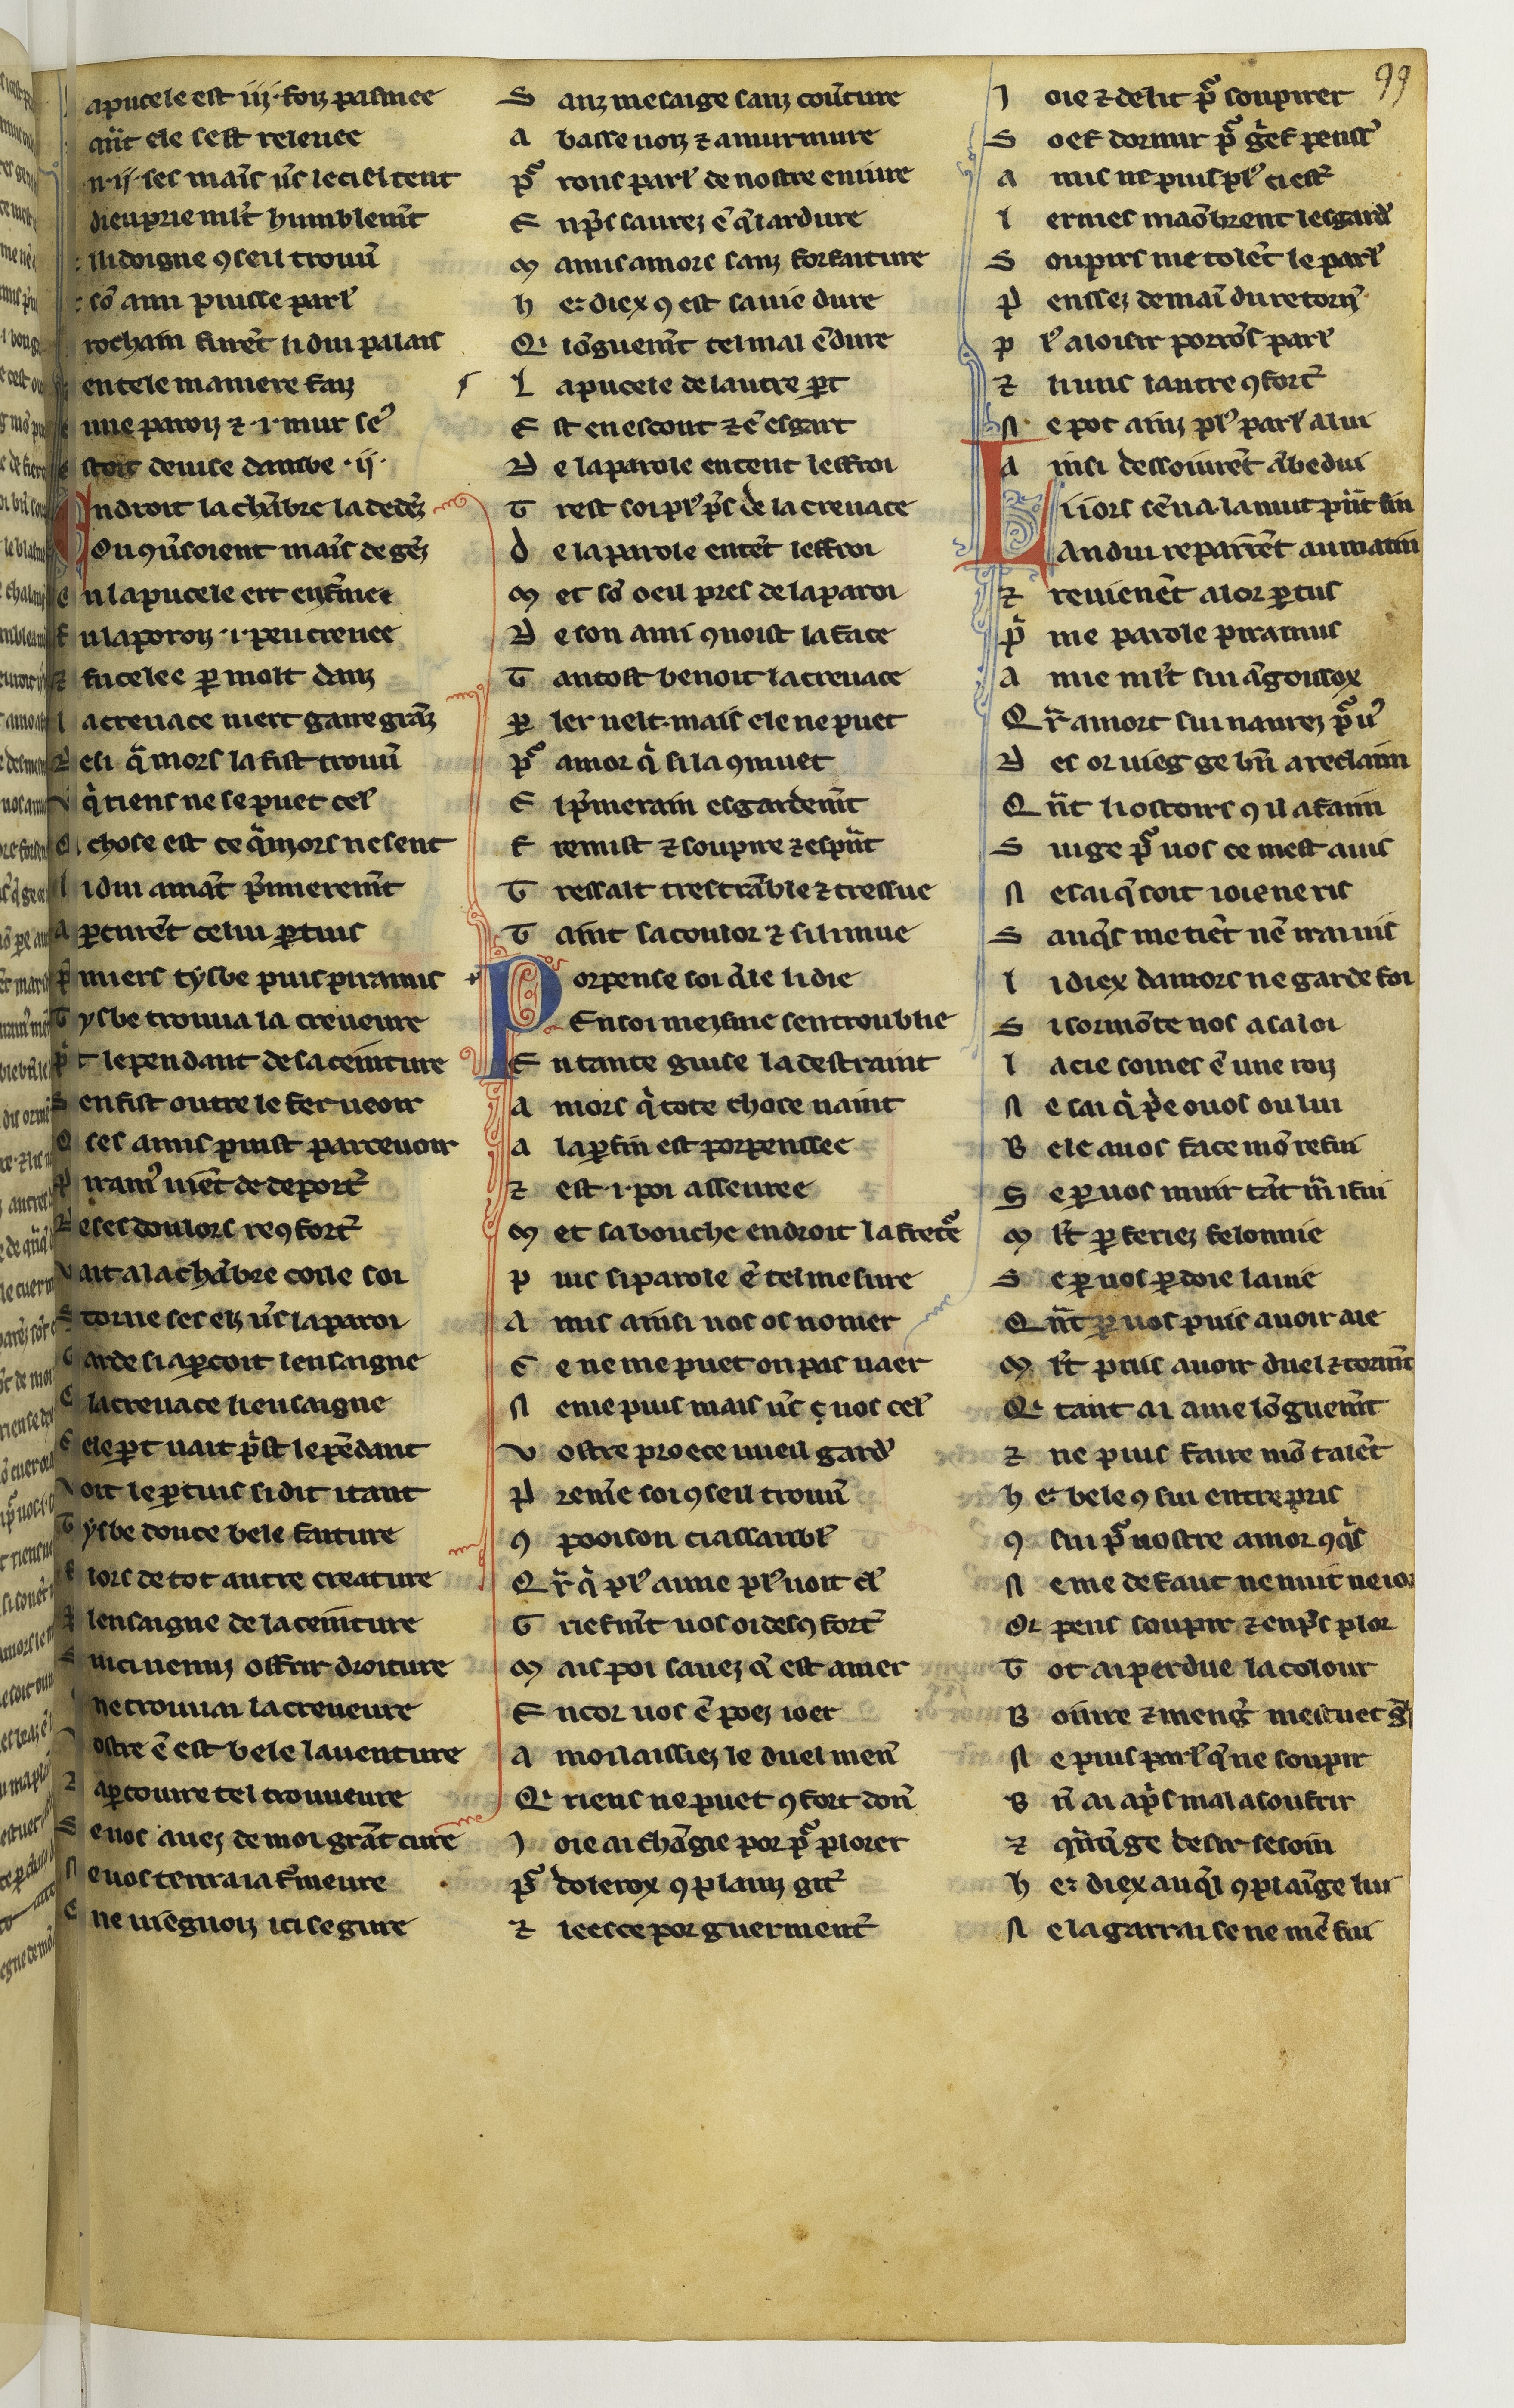 99
apucele est iij. foiz pasmee
qn̄t ele sest releuee
n .ij. ses mais̄ us̄ le ciel tent
dieu prie ml̄t humblem̄t
ili doigne ꝯseil trouu̅
sō ami puisse parl̾
rochain furēt li dui palais
en tele maniere faiz
une paroiz ⁊ .i. mur se̾
stoit deuise dambe .ij.
Endroit la chābre la dedēz
Ou ꝯu̅soient mais̄ de gēz
E n la pucele ert enfm̄ee
F u la poroiz .i. peu creuee
⁊ fu celee ꝑ molt danz
L a creuace niert gaire grāz
D esi q̄ mors la fist trouu̅
V q̍ riens ne se puet cel̾
Q chose est ce q̄ mors ne sent
L i dui amāt p̄mierem̄t
A ꝑcurēt celui ꝑtuis
P̄ miers tysbe puis piramus
T ysbe trouua la creueure
P̍t le pendant de sa ceinture
S en fist outre le fer ueoir
Q ses amis puist parceuoir
P iram̾ uiēt de deport̾
D e ses doulors reꝯfort̾
V ait a la chābre coile soi
S torne ses elz us̄ la paroi
G arde si aꝑcoit lensaigne
E la creuace li ensaigne
C ele ꝑt uait p̍st le pēdant
V oit le ꝑtuis si dit itant
T ysbe douce bele faiture
F lors de tot autre creature
A lensaigne de la ceinture
S ui ci uenuz offrir droiture
ne trouuai la creueure
V ostre ē est bele lauenture
⁊ aꝑcoiure tel trouueure
S e uos auez de moi grāt cure
N e uos tenra ia fm̄eure
E ne uiegnoiz ici segure
S anz mesaige sanz cou̅ture
A basse uoiz ⁊ a murmure
P̾ rons parl̾ de nostre eniure
E np̄s saurez ē q̄ iardure
M amis amors sanz forfaiture
H e: diex ꝯ est sa uie dure
Qi lōguem̄t tel mal ēdure
L a pucele de lautre ꝑt
E st en escout ⁊ ē esgart
D e la parole entent leffroi
T rest soi pl̾ p̄s de la creuace
D e la parole entēt leffroi
M et sō oeil pres de la paroi
D e son ami ꝯnoist la face
T antost benoit la creuace
Ꝑ ler uelt. mais ele ne puet
P̾ amor q̍ si la ꝯmuet
E l p̍merain esgardem̄t
F remist ⁊ soupire ⁊ esprāt
T ressalt trestrāble ⁊ tressue
T aint sa coulor ⁊ si li mue
P orpense soi q̄le li die
En soi meisme sentroublie
E n tante guise la destraint
A mors q̍ tote chose uaint
A la ꝑfin est porpensee
⁊ est .i. poi asseuree
M et sa bouche endroit la frete̾
P uis si parole ē tel mesure
A mis ainsi uos os nomer
C e ne me puet on pas uaer
N eme puis mais us̄ ç uos cel̾
V ostre proece uueil gard̾
P renēe soi ꝯseil trouu̅
ꝯ pooison ci assanbl̾
Qr̄ q̍ pl̾ aime pl̾ uoit cl̾
T riefm̄t uos oi desꝯfort̾
M ais poi sauez q̄ est amer
E ncor uos ē poez ioer
A moi laissiez le duel men̄
Qi riens ne puet ꝯfort don̄
J oie ai chāgie por p̾ plorer
P̾ dolerox ꝯplainz git̾
⁊ leesce por guerment̾
J oie ⁊ delit p̾ soupirer
S oef dormir p̾ g̍ef pens̾
A mis ne puis pl̾ ci est̾
L ermes maōbrent lesgard̾
S oupirs me tolēt le parl̾
P ensez demaī du retorn̄
P l̾ aloisir porrōs parl̾
⁊ li uns lautre ꝯfort̾
N e pot ainz pl̾ parl̾ a lui
A insi dessoiurēt ābedui
L i iors sēua. la nuit p̄nt fin
Landui reparrēt au matin
⁊ reuienēt a lor ꝑtuis
P̍ me parole piramus
A mie ml̄t sui āgoissox
Qr̄ amort sui naurez p̾ u̾
D es or uieg ge bn̄ a reclaim
Qn̄t li ostoirs ꝯ il a faim
S uige p̾ uos ce mest auis
N e sai q̄ soit ioie ne ris
S auq̄s me tiēt nē irai uis
L i diex damors ne garde foi
S i sormōte nos a sa loi
L acie somes ē une roiz
N e sai q̍ p̍e o uos ou lui
B ele a uos face mō refui
S e ꝑ uos muir tāt m̄ i fui
M l̄t ꝑ feriez felonnie
S e ꝑ uos ꝑdoie la uie
Qn̄t ꝑ uos puis auoir aie
M l̄t puis auoir duel ⁊ torm̄t
Qi tant ai ame lōguem̄t
⁊ ne puis faire mō talēt
H e: bele ꝯ sui entrepris
ꝯ sui p̾ uostre amor ꝯq̍s
N e me defaut ne nuit ne ior
Or pens soupir ⁊ enp̄s plor
T ot ai perdue la colour
B oiure ⁊ meng̍ mestuet
N e puis parl̾ q̄ ne soupir
B n̄ ai ap̍s mal a soufrir
⁊ qn̄q̄ ge desir sesoin
H e: diex auq̄l ꝯplāige lui
N e la garrai se ne mē fui